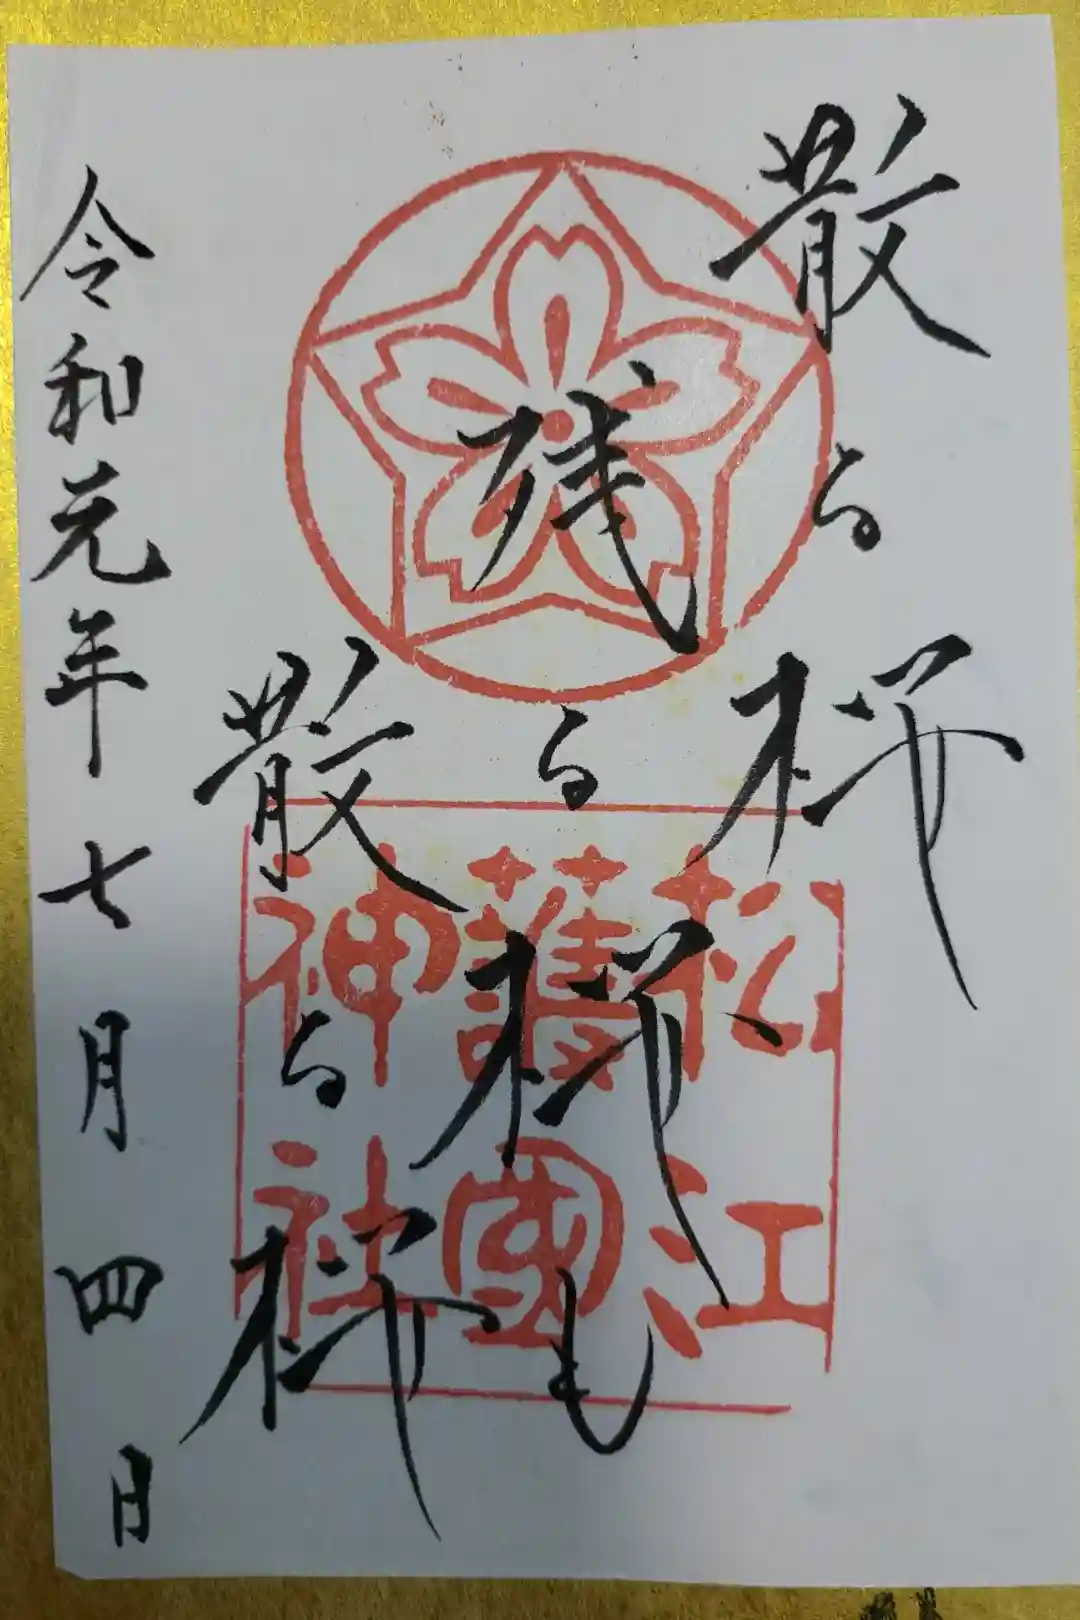 散る桜
残る桜も
散る桜
令和元年七月四日
松江
護國
神社